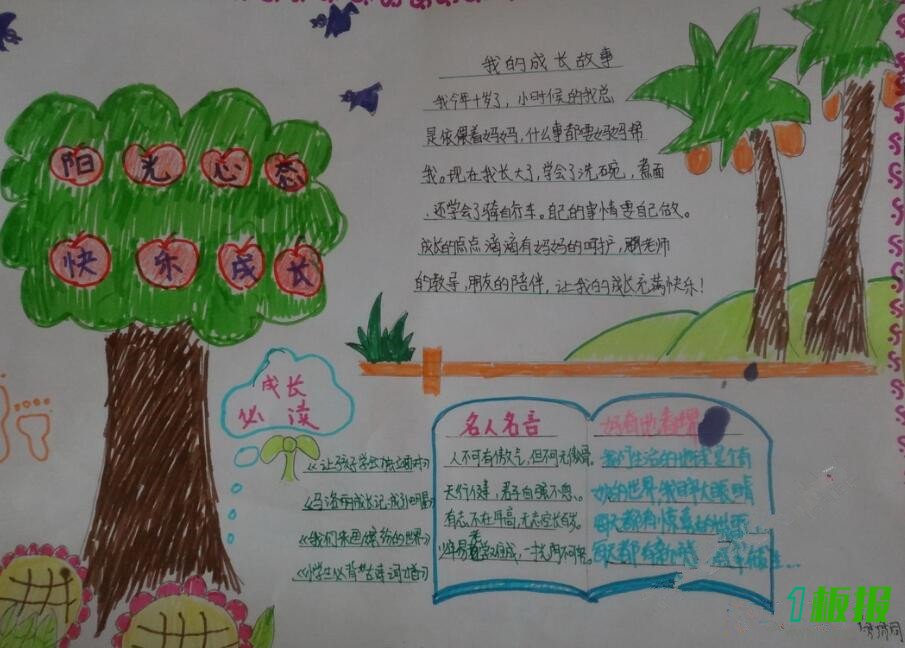 阳光心态
快乐成长
我的成长故事
我今年十岁了，小时候的我总
是依偎着妈妈，什么事都要妈妈帮
我。现在我长大了，学会了洗碗，煮面
，还学会了骑自行车。自己的事情要自己做。
成长的点点滴滴有妈妈的呵护，老师
的教导，朋友的陪伴，让我的成长充满快乐！
成长
必读
《让孩子学会独立面对》
《我们来画缤纷的世界》
《小学生必背古诗词
名人名言
人不可有傲气，但不可无傲骨。
天行健，君子自强不息。
有志不在年高，无志空长百岁。
少年易学老难成，一寸光阴不可轻。
我们生活的地球是个有
的世界，我睁大眼睛
每天都有惊喜的
每天都有新
1板报